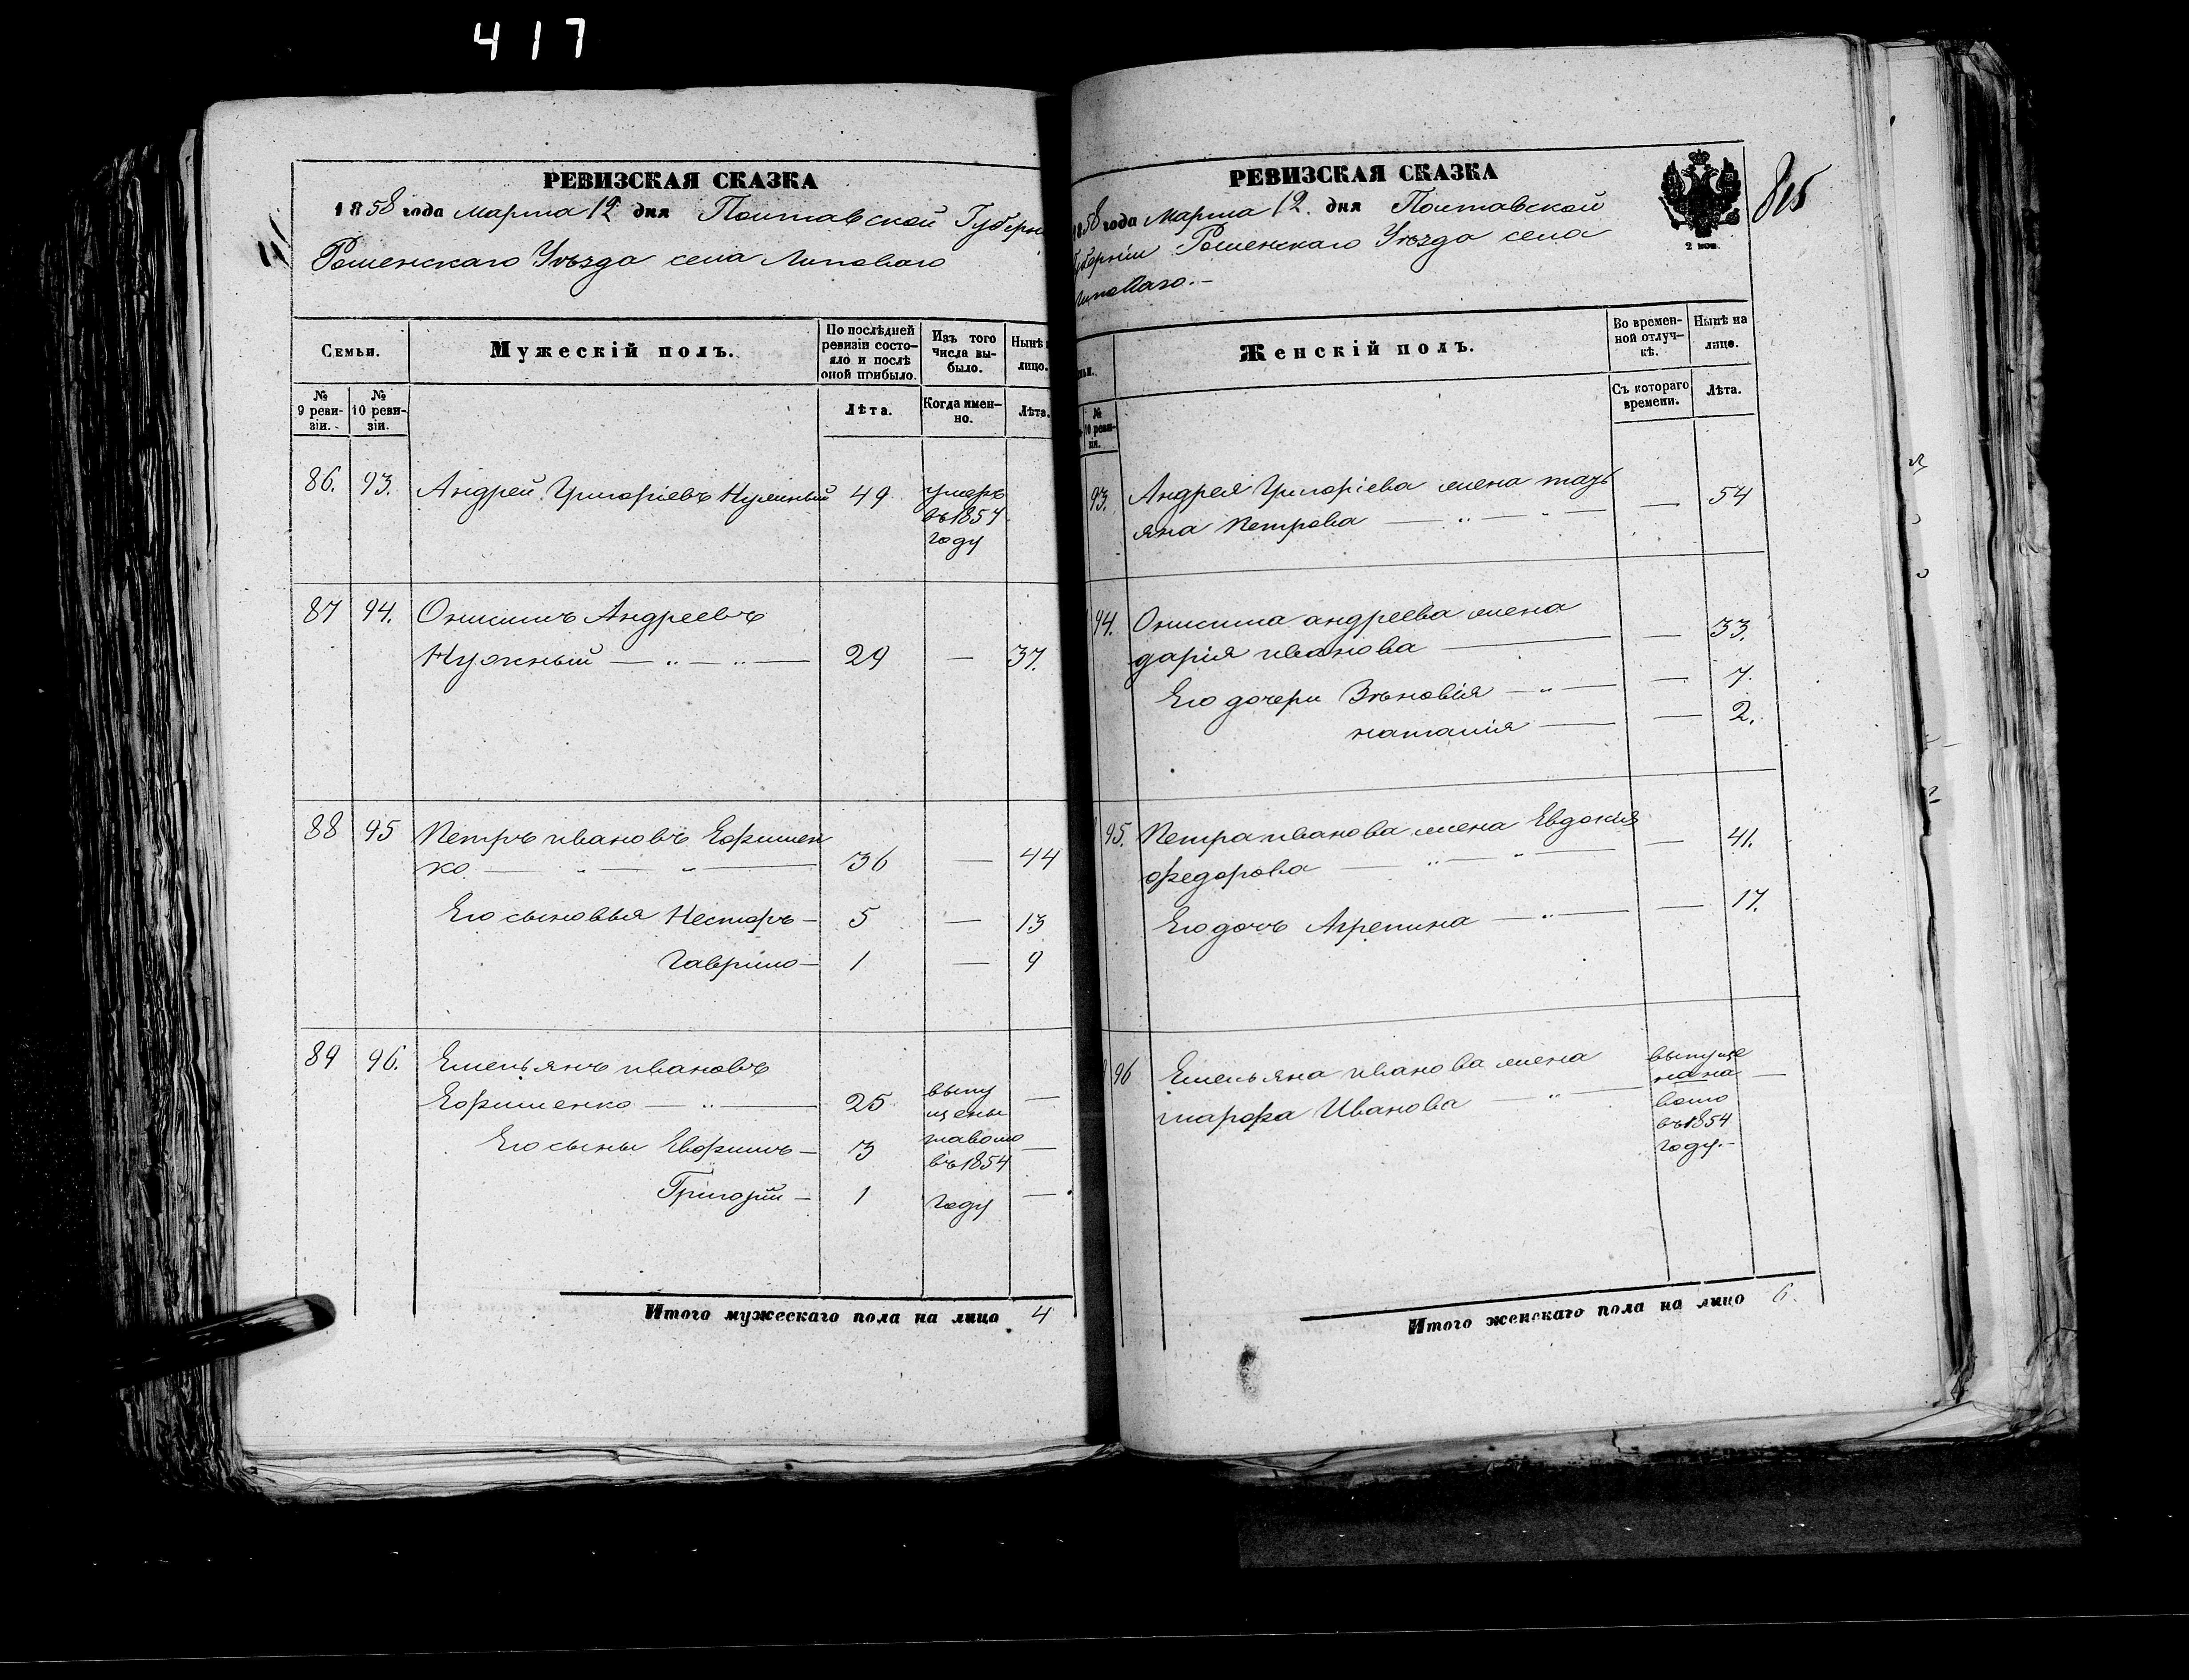 417
РЕВИЗСКАЯ СКАЗКА
1858 года Марта 12 дня Полтавской Губерн
Роменскаго Уѣзда села Липоваго
Семьи.
Мужескій полъ.
По послѣдней ревизіи состояло и послѣ оной прибыло.
Изъ того числа выбыло.
Нынѣ на лицо.
№ 9 ревизіи.
№ 10 ревизіи.
Лѣта.
Когда именно.
Лѣта.
86. 93. Андрей Григоріевъ Нужный 49 умеръ
въ 1854
году
87 94. Онисимъ Андреевъ
Нужный — „ — „ — 29 — 37.
88 95 Петръ Ивановъ Ефимен
ко — „ — „ — 36 — 44
Его сыновья Несторъ — 5 — 13
Гаврило — 1 — 9
89 96. Емельянъ Ивановъ
Ефименко — „ — 25 выпу
щены —
Его сыны Евфимъ — 3 на волю
въ 1854 —
Григорій — 1 году —
Итого мужескаго пола на лицо 4
РЕВИЗСКАЯ СКАЗКА
1858 года Марта 12. дня Полтавской
Губерніи Роменскаго Уѣзда села
Липоваго. —
2 коп.
815
Женскій полъ.
Во временной отлучкѣ.
Нынѣ на лицо.
№ 10 ревизіи.
Съ котораго времени.
Лѣта.
93. Андрея Григоріева жена тать
яна Петрова — „ — „ — — 54
94. Онисима андреева жена
дарія иванова — — 33.
Его дочери Зѣновія — „ — — 7.
наталія — — 2.
95. Петра иванова жена Евдокия
федорова — „ — „ — — 41.
Его дочь Агрепина — „ — — 17.
96 Емельяна иванова жена выпуще
на на —
марфа Иванова — „ — волю
въ 1854
году. —
Итого женскаго пола на лицо 6.